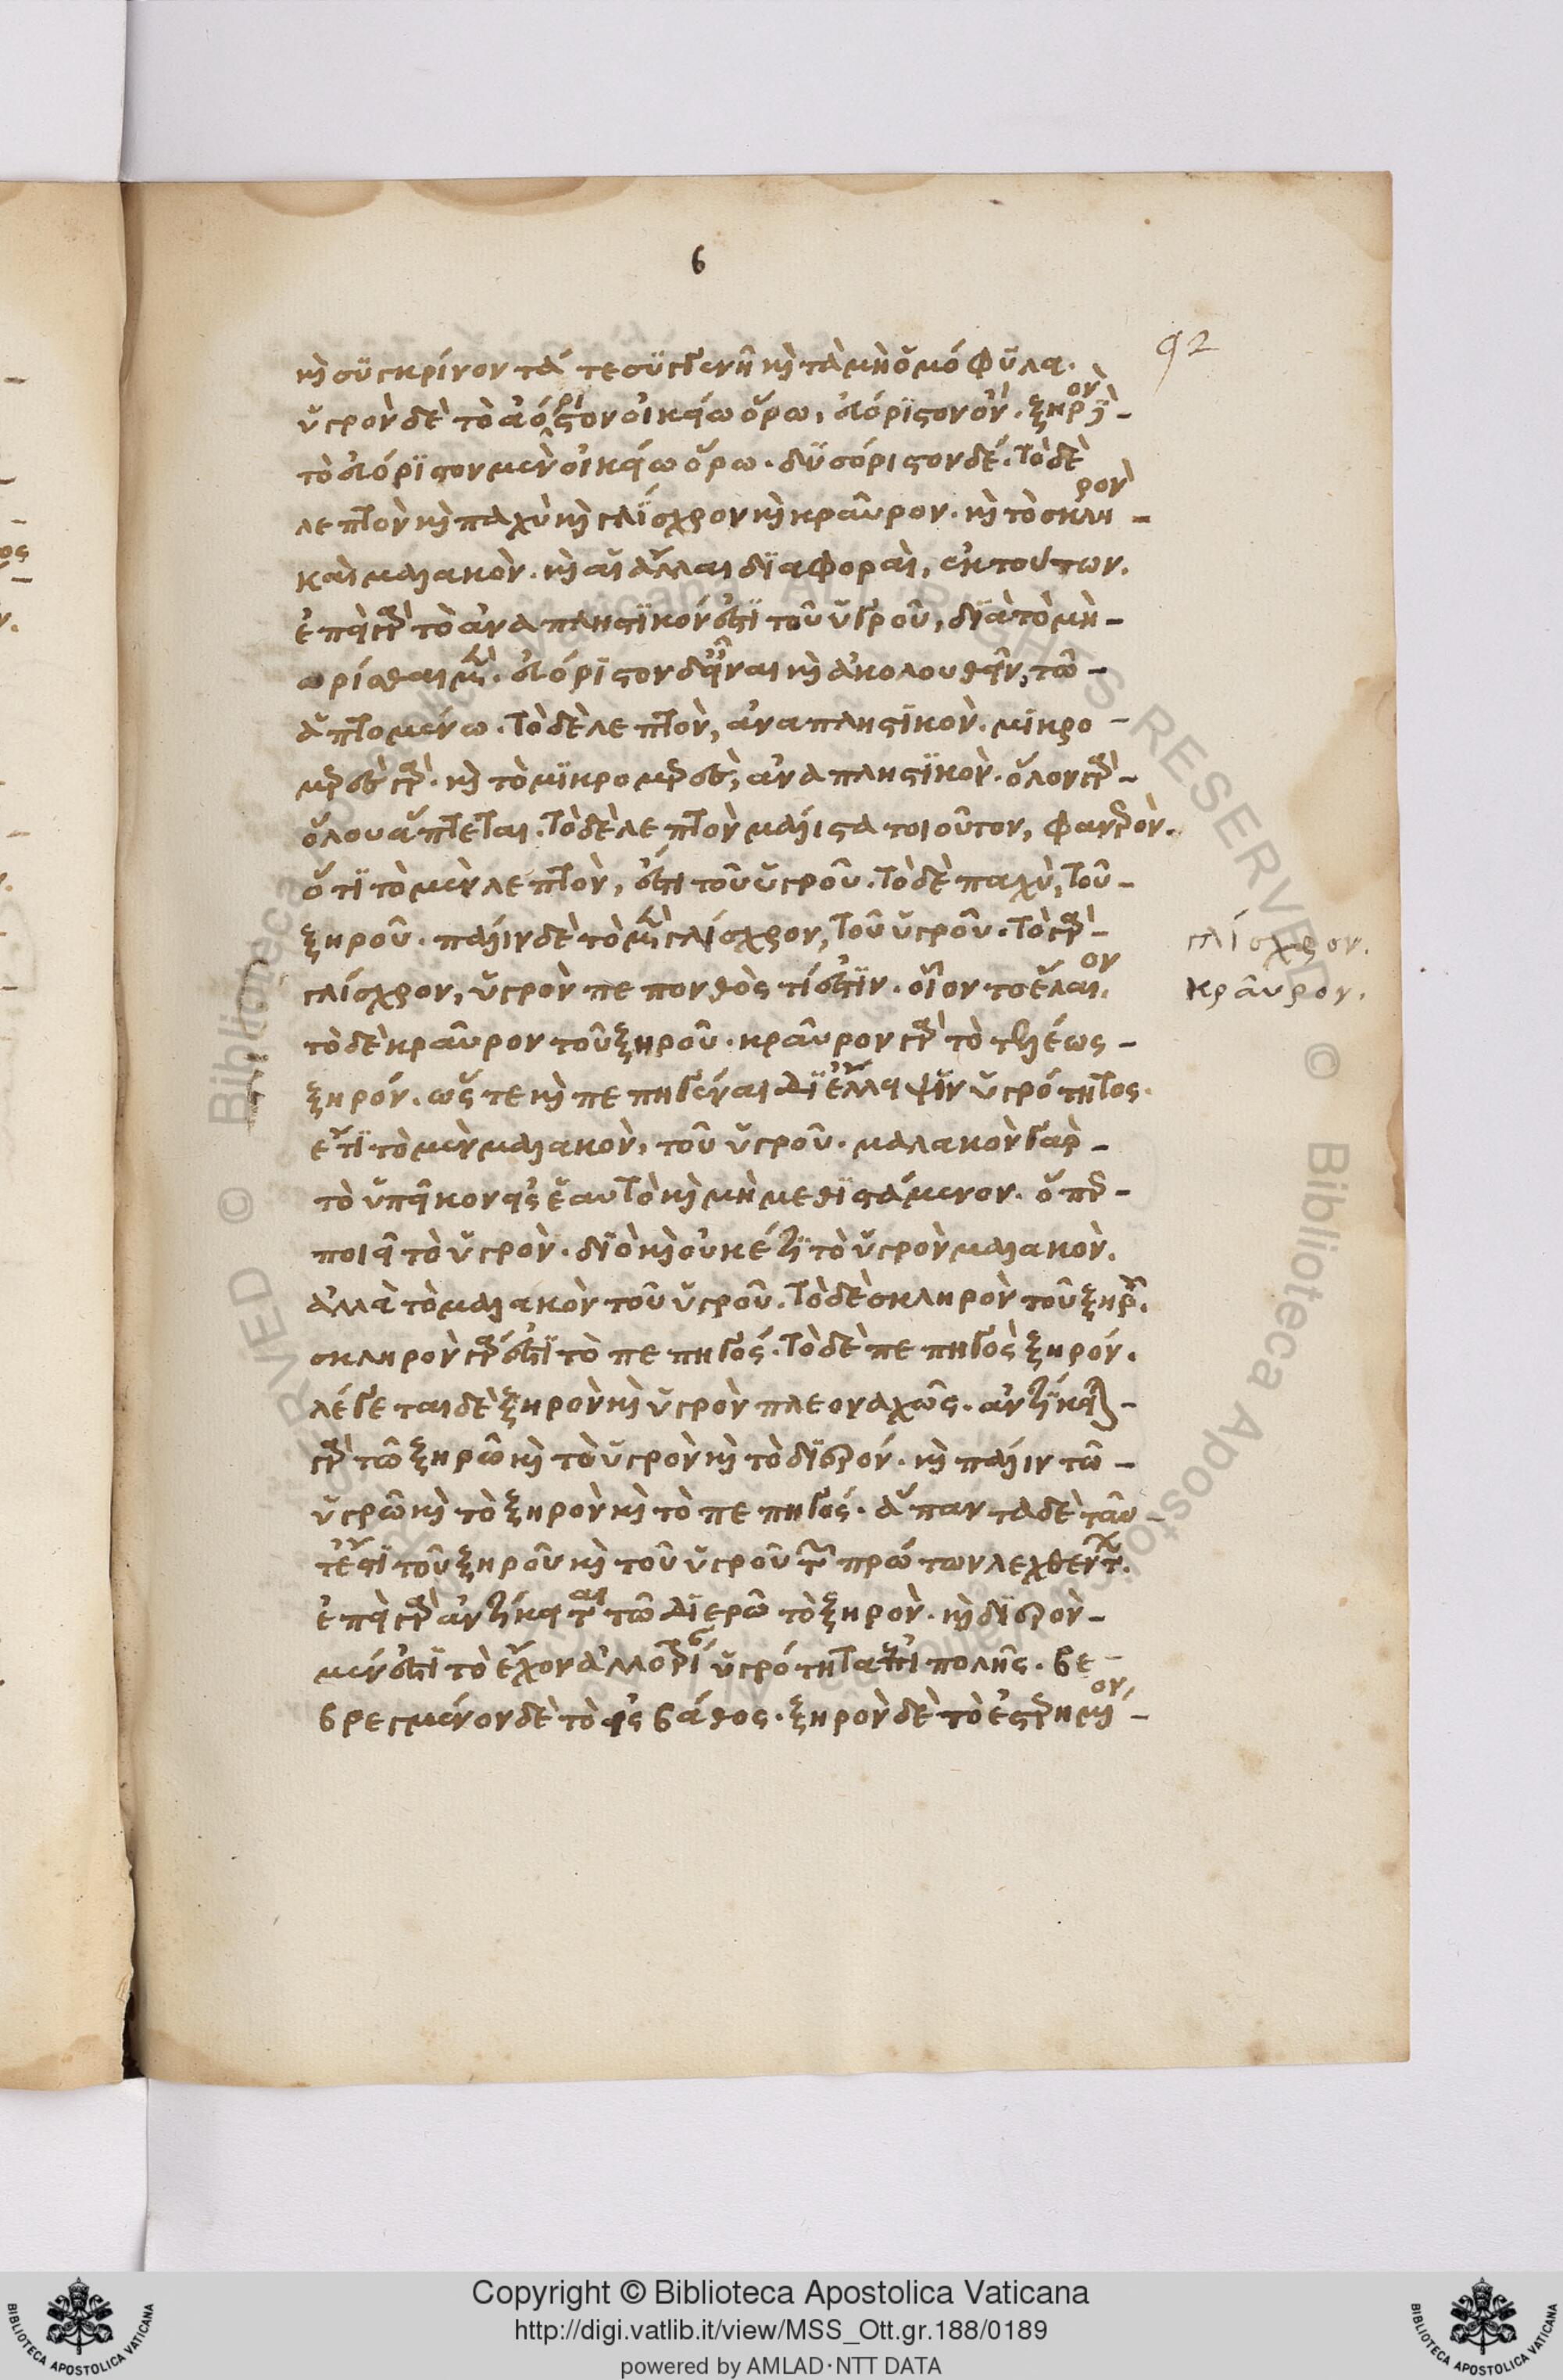 β
92
καὶ συγκρῖνον τά τε συγγενῆ καὶ τὰ μὴ ὁμόφυλα.
ὑγρὸν δὲ τὸ ἀόριστον οἰκείω ὅρω, εὐόριστον ὄν. ξηρὸν δὲ
τὸ εὐόριστον μὲν οἰκείω ὅρω. δυσόριστον δέ. τὸ δὲ
λεπτὸν καὶ παχὺ καὶ γλίσχρον καὶ κραῦρον. καὶ τὸ σκληρὸν
καὶ μαλακὸν. καὶ αἱ ἄλλαι διαφοραὶ, ἐκ τούτων.
ἐπεὶ γὰρ τὸ ἀναπληστικόν ἐστι τοῦ ὑγροῦ, διὰ τὸ μὴ
ὡρίσθαι μὲν. εὐόριστον δ' εἶναι καὶ ἀκολουθεῖν, τῶ
ἁπτομένω. τὸ δὲ λεπτὸν, ἀναπληστικὸν. μικρο
μερὲς γὰρ. καὶ τὸ μικρομερὲς, ἀναπληστικὸν. ὅλον γὰρ
ὅλου ἅπτεται. τὸ δὲ λεπτὸν μάλιστα τοιοῦτον, φανερὸν.
ὅτι τὸ μὲν λεπτὸν, ἐστὶ τοῦ ὑγροῦ. τὸ δὲ παχὺ, τοῦ
ξηροῦ. πάλιν δὲ τὸ μὲν γλίσχρον, τοῦ ὑγροῦ. τὸ γὰρ
γλίσχρον, ὑγρὸν πεπονθός τί ἐστιν. οἷον τὸ ἔλαιον.
τὸ δὲ κραῦρον τοῦ ξηροῦ. κραῦρον γὰρ τὸ τελέως
ξηρόν. ὥστε καὶ πεπηγέναι δι' ἔλλειψιν ὑγρότητος.
ἔτι τὸ μὲν μαλακὸν, τοῦ ὑγροῦ. μαλακὸν γὰρ
τὸ ὑπεῖκον εἰς ἑαυτὸ καὶ μὴ μεθιστάμενον. ὅπερ
ποιεῖ τὸ ὑγρὸν. διὸ καὶ οὐκ ἔστι τὸ ὑγρὸν μαλακὸν.
ἀλλὰ τὸ μαλακὸν τοῦ ὑγροῦ. τὸ δὲ σκληρὸν τοῦ ξηροῦ.
σκληρὸν γάρ ἐστι τὸ πεπηγός. τὸ δὲ πεπηγὸς ξηρόν.
λέγεται δὲ ξηρὸν καὶ ὑγρὸν πλεοναχῶς. ἀντίκειται
γὰρ τῶ ξηρῶ καὶ τὸ ὑγρὸν καὶ τὸ διερόν. καὶ πάλιν τῶ
ὑγρῶ καὶ τὸ ξηρὸν καὶ τὸ πεπηγός. ἅπαντα δὲ ταῦ
τ' ἐστὶ τοῦ ξηροῦ καὶ τοῦ ὑγροῦ τῶν πρώτων λεχθέντων.
ἐπεὶ γὰρ ἀντίκειται τῶ διερῶ τὸ ξηρὸν. καὶ διερὸν
μέν ἐστι τὸ ἔχον ἀλλοτρίαν ὑγρότητα ἐπιπολῆς. βε
βρεγμένον δὲ τὸ εἰς βάθος. ξηρὸν δὲ τὸ ἐστερημένον
γλίσχρον.
κραῦρον.
Copyright © Biblioteca Apostolica Vaticana
http://digi.vatlib.it/view/MSS_Ott.gr.188/0189
powered by AMLAD·NTT DATA